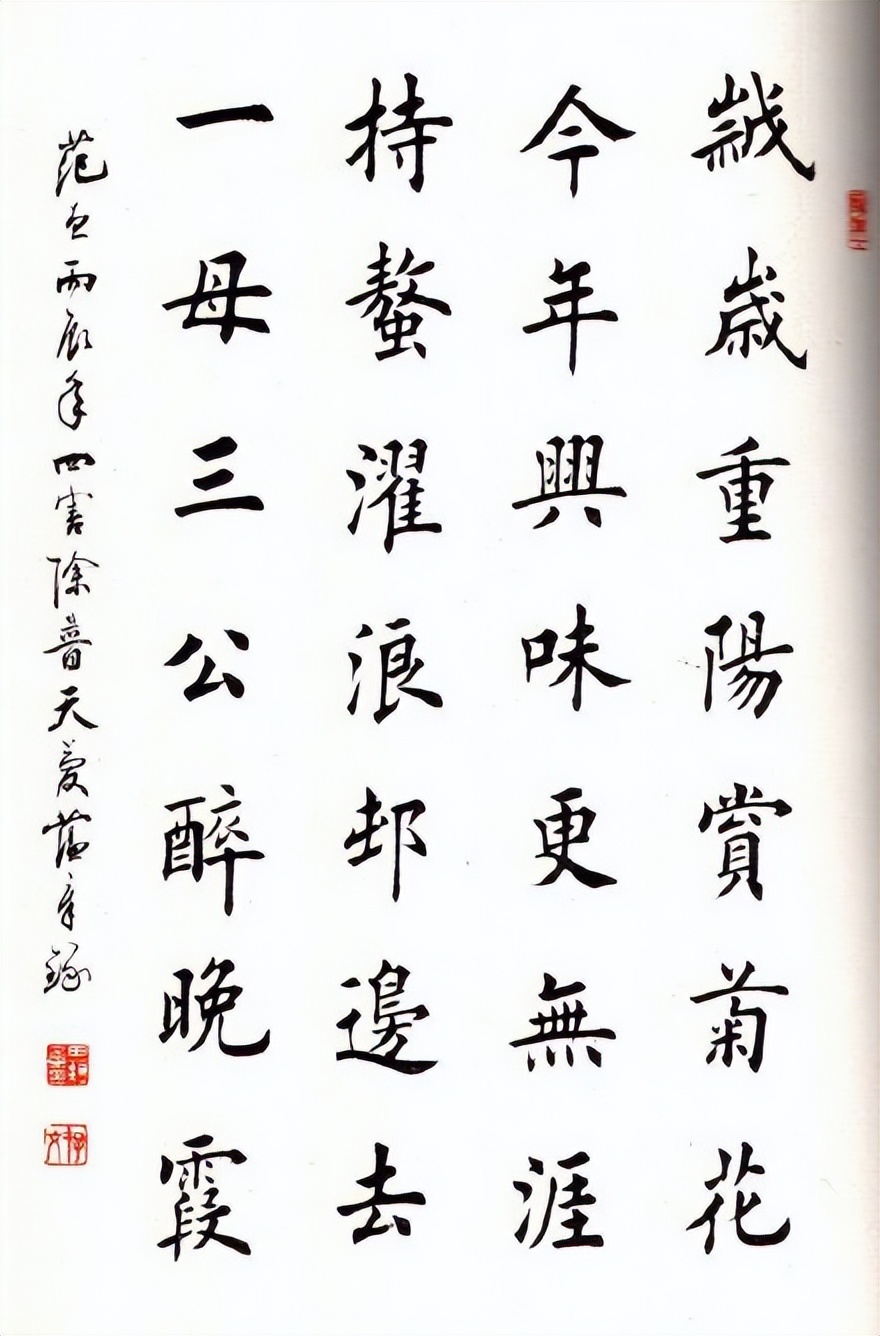 歲歲重陽賞菊花
今年興味更無涯
持螯濯浪邨邊去
一母三公醉晚霞
范老兩周年四害除普天慶蘊章錄